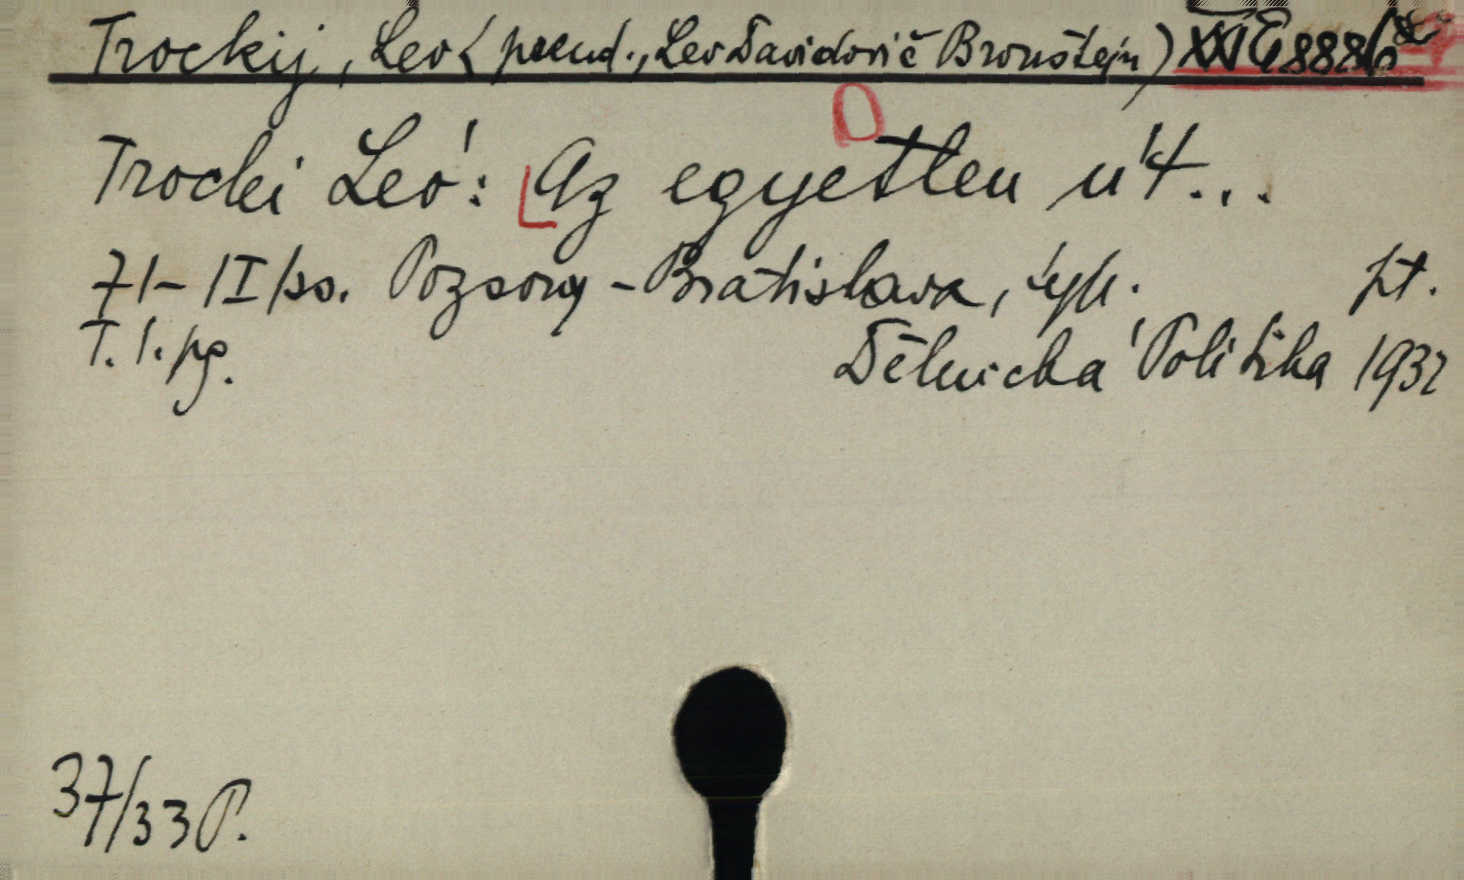 Trockij, Leo (pseud., Lev Davidovič Bronštejn) XXI E 8886
Trocki Leó: Az egyetlen út...
71-/I/ss. Pozsony-Bratislava, typ. pt.
T. 1. pg. Dělnická Politika 1932
37/33 P.